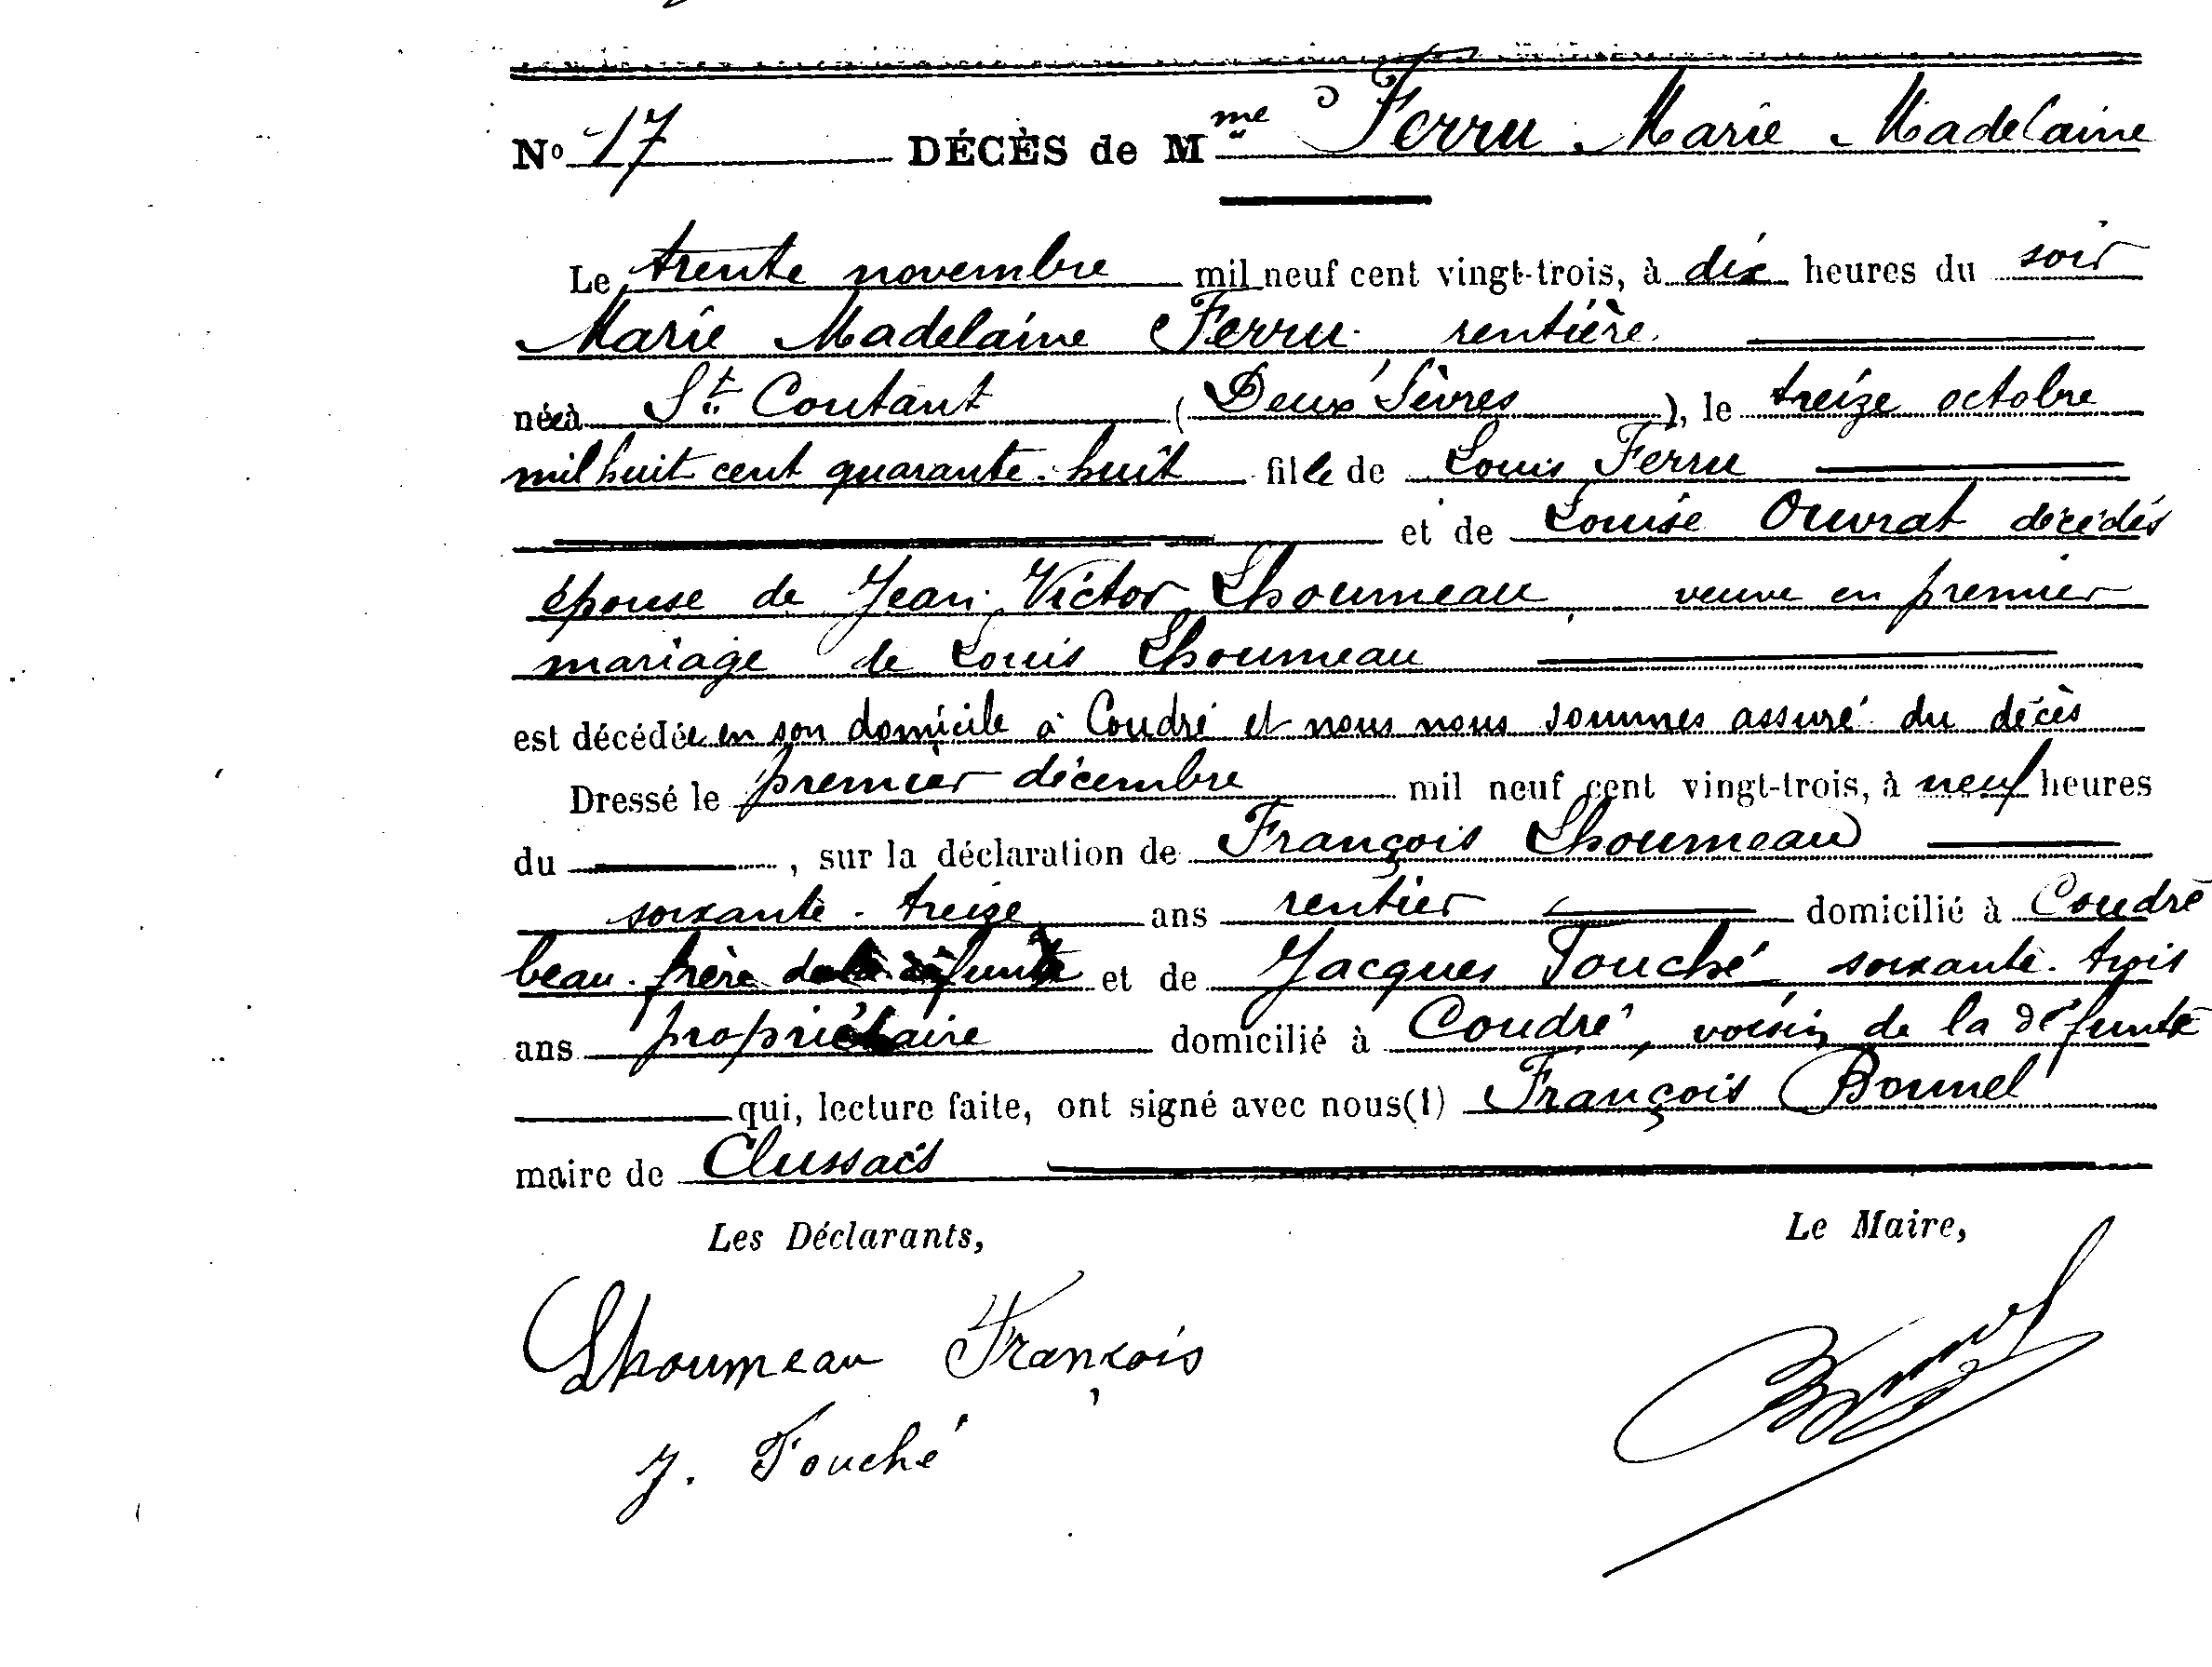 No 17 DÉCÈS de Mme Ferru Marie Madelaine
Le trente novembre mil neuf cent vingt-trois, à dix heures du soir
Marie Madelaine Ferru rentière
née à St Coutant (Deux Sèvres), le treize octobre
mil huit cent quarante-huit fille de Louis Ferru
et de Louise Ouvrat décédés
épouse de Jean Victor Lhoumeau, veuve en premier
mariage de Louis Lhoumeau
est décédée en son domicile à Coudré et nous nous sommes assuré du décès
Dressé le premier décembre mil neuf cent vingt-trois, à neuf heures
du , sur la déclaration de François Lhoumeau
soixante-treize ans rentier domicilié à Coudré
beau-frère de la défunte et de Jacques Fouché soixante-trois
ans propriétaire domicilié à Coudré, voisin de la défunte
qui, lecture faite, ont signé avec nous(1) François Bonnel
maire de Clussais
Les Déclarants, Le Maire,
Lhoumeau François
J. Fouché